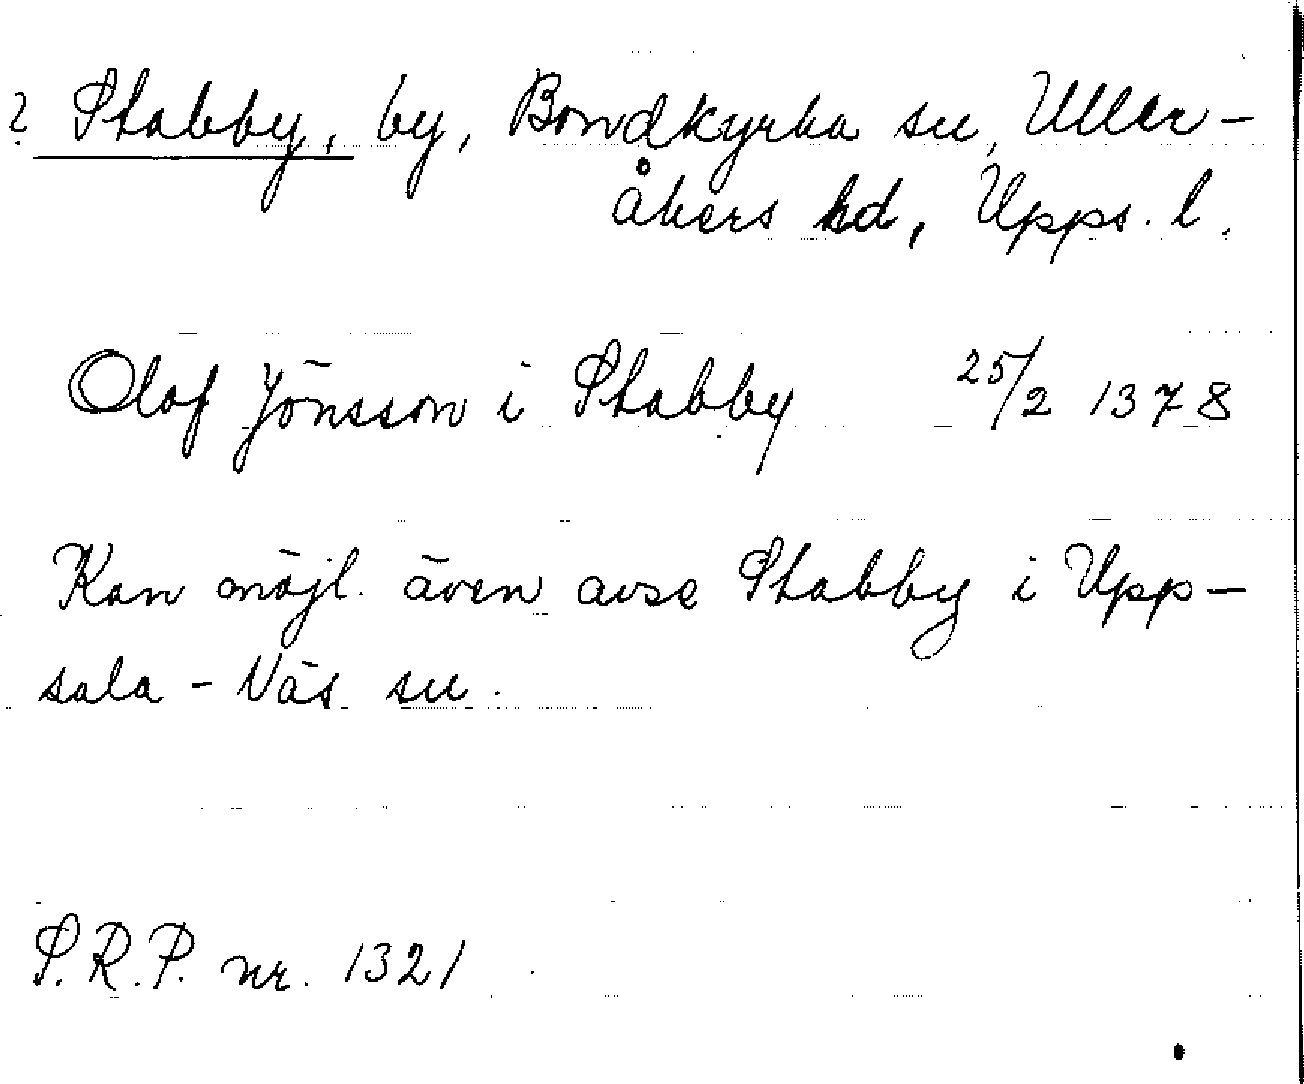 ? Stabby, by, Bondkyrka sn, Uller-
åkers hd, Upps. l.
Olaf Jönsson i Stabby 25/2 1378
Kan möjl. även avse Stabby i Upp-
sala - Näs sn.
S.R.P. nr. 1321